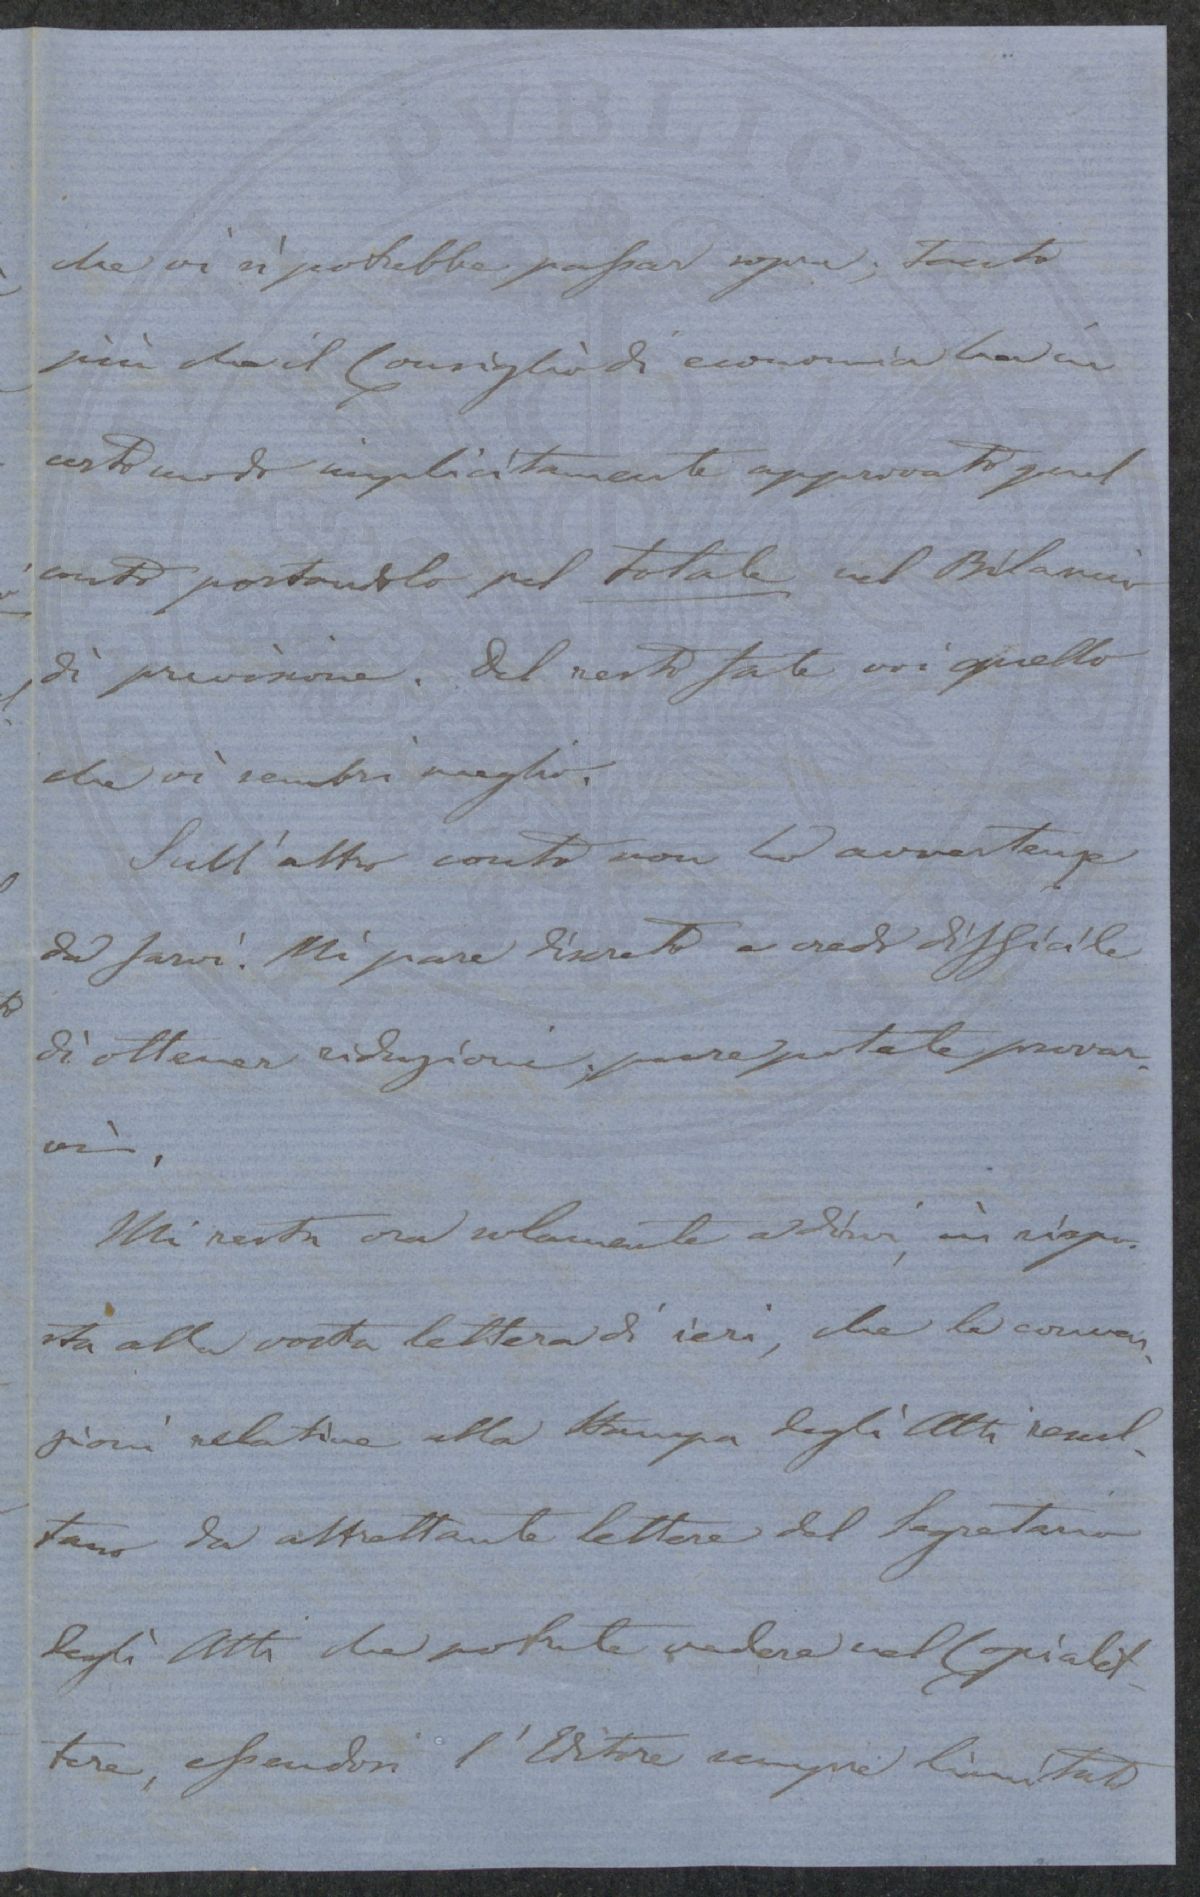 che vi si potrebbe passar sopra; tanto
più che il Consiglio di economia ha in
certo modo implicitamente approvato quel
conto portandolo pel totale nel Bilancio
di previsione. Del resto fate voi quello
che vi sembri meglio.
Sull'altro conto non ho avvertenze
da farvi. Mi pare discreto e credo difficile
di ottener riduzioni; pure potete provar-
vi.
Mi resta ora solamente a dirvi, in rispo-
sta alla vostra lettera di ieri, che le conven-
zioni relative alla stampa degli Atti resul-
tano da altrettante lettere del Segretario
degli Atti che potrete vedere nel Copialet-
tere, essendosi l'Editore sempre limitato